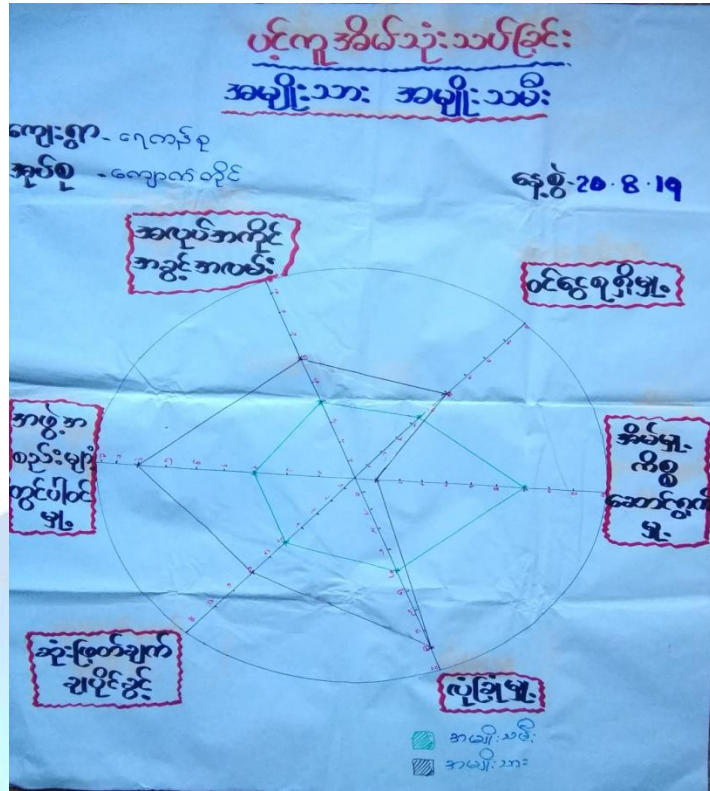 ပင့်ကူအိမ်သုံးသပ်ခြင်း
အမျိုးသား အမျိုးသမီး
ကျေးရွာ - ရေကန်စု
အုပ်စု - ကျောက်တိုင်
နေ့စွဲ - 20.8.19
အလုပ်အကိုင်
အခွင့်အလမ်း
ဝင်ငွေရရှိမှု
အဖွဲ့အ
စည်းများ
တွင်ပါဝင်
မှု
အိမ်မှု
ကိစ္စ
ဆောင်ရွက်
မှု
ဆုံးဖြတ်ချက်
ချပိုင်ခွင့်
လုံခြုံမှု
အမျိုးသမီး
အမျိုးသား